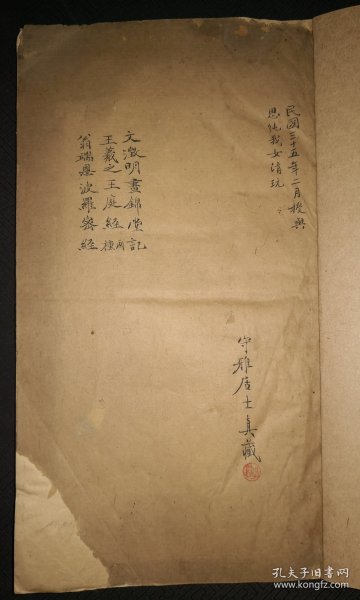 民國三十五年二月授與
思純我女清玩
文徵明晝錦堂記
王羲之黃庭經兩種
翁瑞恩波羅密經
守雅居士真藏
孔夫子旧书网
www.kongfz.com